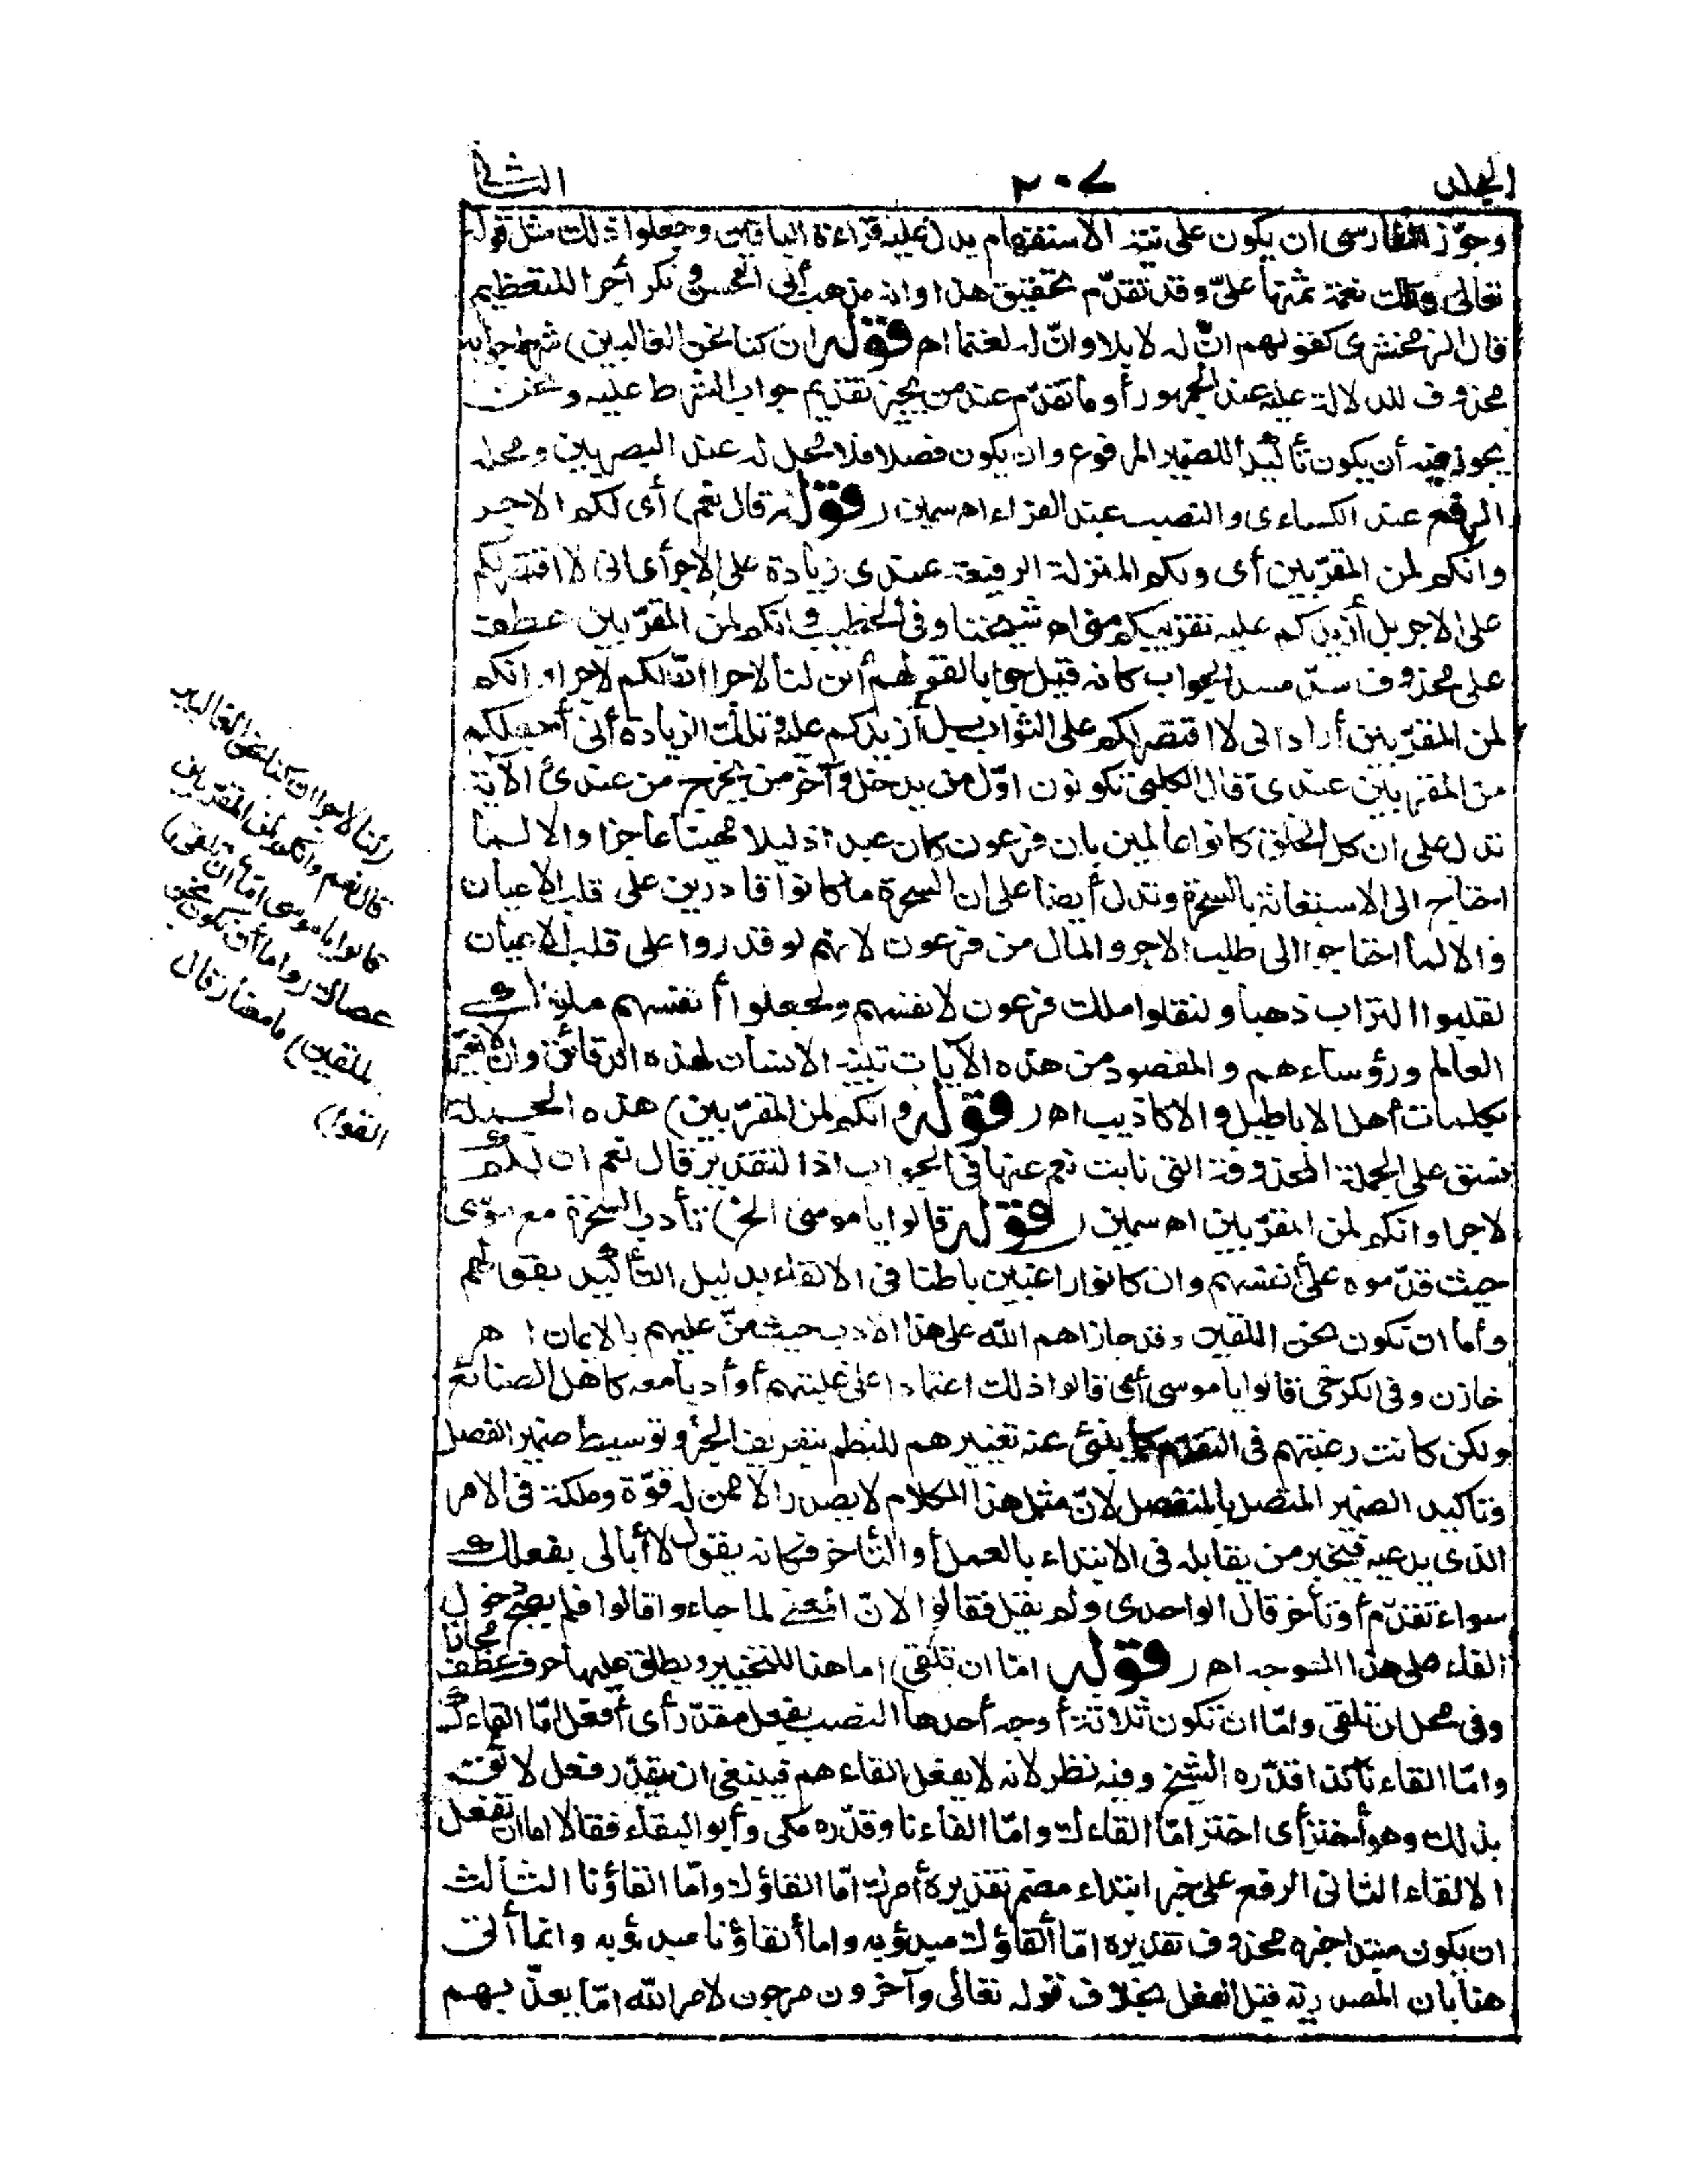 الجلد ٢٠٧ الثانى
وجوّز الفارسى ان يكون على نية الاستفهام يدل عليه قراءة الباقين وجعلوا ذلك مثل قوله
تعالى وتلك نعمة تمنها علىّ وقد تقدّم تحقيق هذا وانه مذهب أبى الحسن ونكر أجرا للتعظيم
قال الزمخشرى كقولهم انّ له لابلا وانّ له لغنما اه قوله ان كنا نحن الغالبين) شرط جوابه
محذوف للدلالة عليه عند الجمهور أو ما تقدّم عند من يجيز تقديم جواب الشرط عليه ونحن
يجوز فيه أن يكون تأكيدا للضمير المرفوع وان يكون فصلا فلا محل له عند البصريين ومحله
الرفع عند الكساءى والنصب عند الفراء اه سمين (قوله قال نعم) أى لكم الاجر
وانكم لمن المقرّبين أى ولكم المنزلة الرفيعة عندى زيادة على الاجر أى انى لا اقتصر بكم
على الاجر بل أزيدكم عليه تقريبكم منى اه شيخنا وفى الخطيب وانكم لمن المقرّبين عطف
على محذوف سدّ مسد الجواب كانه قيل جوابا لقولهم أئن لنا لاجرا انّ لكم لاجرا وانكم
لمن المقرّبين أراد انى لا اقتصر لكم على الثواب بل أزيدكم عليه وتلك الزيادة أنى أجعلكم
من المقربين عندى قال الكلبى تكونون اوّل من يدخل وآخر من يخرج من عندى الآية
تدل على ان كل الخلق كانوا عالمين بان فرعون كان عبدا ذليلا مهينا عاجزا والا لما
احتاج الى الاستغاثة بالسحرة وتدل أيضا على ان السحرة ما كانوا قادرين على قلب الاعيان
والا لما احتاجوا الى طلب الاجر والمال من فرعون لانهم لو قدروا على قلب الاعيان
لقلبوا التراب ذهبا ولنقلوا ملك فرعون لانفسهم ولجعلوا أنفسهم ملوك
العالم ورؤساءهم والمقصود من هذه الآيات تنبيه الانسان لهذه الدقائق وان لا يغترّ
بكلمات أهل الاباطيل والاكاذيب اه (قوله وانكم لمن المقرّبين) هذه الجملة
نسق على الجملة المحذوفة التى نابت نعم عنها فى الجواب اذ التقدير قال نعم ان لكم
لاجرا وانكم لمن المقرّبين اه سمين (قوله قالوا يا موسى الخ) تأدب السحرة مع موسى
حيث قدّموه على أنفسهم وان كانوا راغبين باطنا فى الالقاء بدليل التأكيد بقولهم
وأما ان نكون نحن الملقين وقد جازاهم الله على هذا الادب حيث منّ عليهم بالايمان اه
خازن وفى الكرخى قالوا يا موسى أى قالوا ذلك اعتمادا على غلبتهم أو أدبا معه كاهل الصنائع
ولكن كانت رغبتهم فى التقدّم كما ينبئ عنه تغييرهم للنظم بتعريف الخبر وتوسيط ضمير الفصل
وتاكيد الضمير المتصل بالمنفصل لانّ مثل هذا الكلام لا يصدر الا ممن له قوّة وملكة فى الامر
الذى يدعيه فيخير من يقابله فى الابتداء بالعمل والتأخر فكانه يقول لا أبالى بفعلك
سواء تقدّم أو تأخر قال الواحدى ولم يقل فقالوا لانّ المعنى لما جاءوا قالوا فلم يصح دخول
الفاء على هذا التوجه اه (قوله امّا ان تلقى) اما هنا للتخيير ويطلق عليها حرف عطف مجازا
وفى محل ان تلقى وامّا ان نكون ثلاثة أوجه أحدها النصب بفعل مقدّر أى أفعل امّا القاءك
وامّا القاءنا كذا قدّره الشيخ وفيه نظر لانه لا يفعل القاءهم فينبغى ان يقدّر فعل لائق
بذلك وهو أختر أى اختر امّا القاءك وامّا القاءنا وقدّره مكى وأبو البقاء فقالا اما ان تفعل
الالقاء الثانى الرفع على خبر ابتداء مضمر تقديره أمرك امّا القاؤك وامّا القاؤنا الثالث
ان يكون مبتدا خبره محذوف تقديره امّا ألقاؤك مبدؤ به واما ألقاؤنا مبدؤ به وانما أتى
هنا بان المصدرية قبل الفعل بخلاف قوله تعالى وآخرون مرجون لامر الله امّا يعذبهم
(ئن لنا لاجرا ان كنا نحن الغالبين
قال نعم وانكم لمن المقربين
قالوا يا موسى امّا أن تلقى)
عصاك (واما أن نكون نحن
الملقين) ما معنا (قال
القوا)